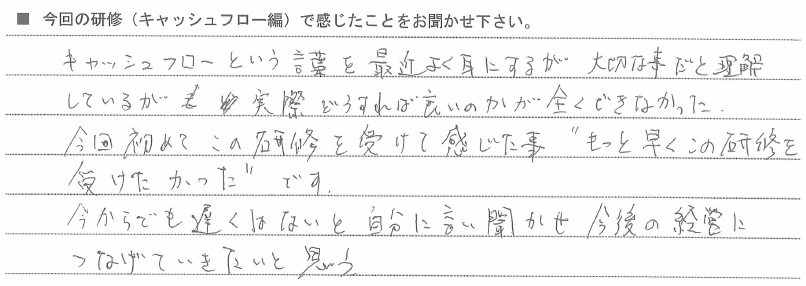 ■ 今回の研修（キャッシュフロー編）で感じたことをお聞かせ下さい。
キャッシュフローという言葉を最近よく耳にするが 大切な事だと理解
しているが 実際どうすれば良いのかが全くできなかった.
今回初めてこの研修を受けて感じた事 "もっと早くこの研修を
受けたかった" です.
今からでも遅くはないと自分に言い聞かせ今後の経営に
つなげていきたいと思う